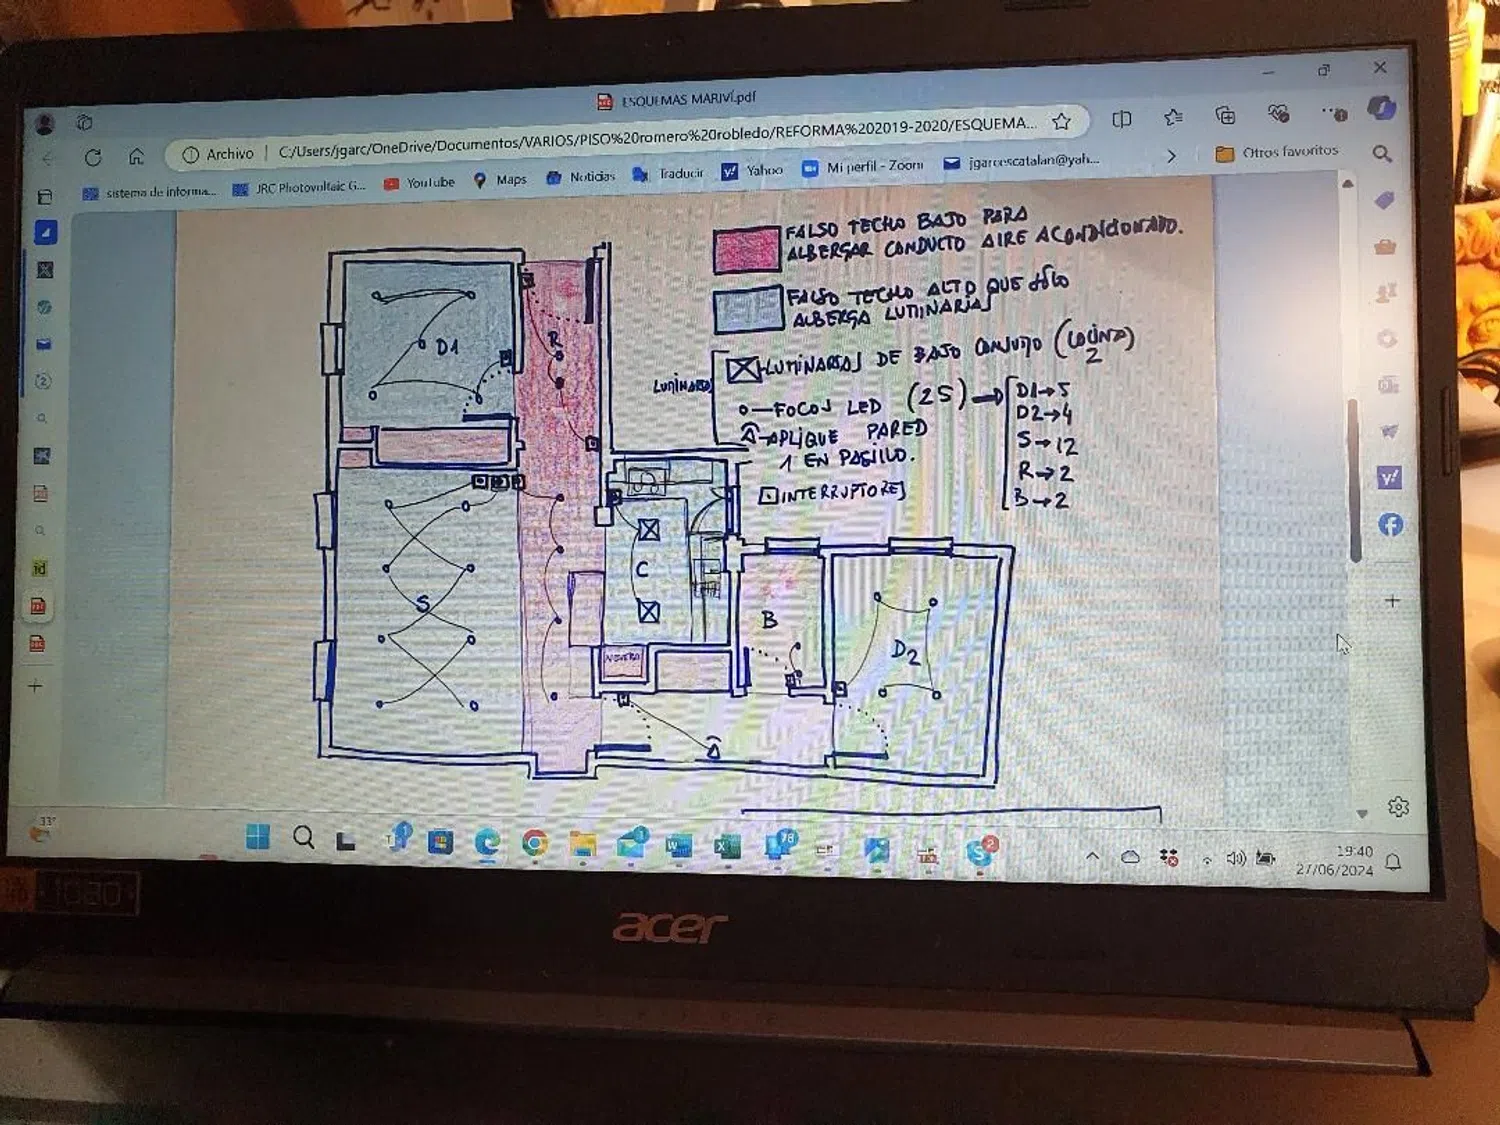 ESQUEMAS MARIVÍ.pdf
Archivo | C:/Users/jgarc/OneDrive/Documentos/VARIOS/PISO%20romero%20robledo/REFORMA%202019-2020/ESQUEMA...
sistema de informa...
JRC Photovoltaic G...
YouTube
Maps
Noticias
Traducir
Yahoo
Mi perfil - Zoom
jgarcescatalan@yah...
Otros favoritos
FALSO TECHO BAJO PARA
ALBERGAR CONDUCTO AIRE ACONDICIONADO.
FALSO TECHO ALTO QUE SÓLO
ALBERGA LUMINARIAS
LUMINARIAS
LUMINARIAS DE BAJO CONSUMO (COCINA)
2
FOCOS LED (25)
D1→5
D2→4
S→12
R→2
B→2
APLIQUE PARED
1 EN PASILLO.
INTERRUPTORES
D1
R
S
C
NEVERA
B
D2
33°
19:40
27/06/2024
acer